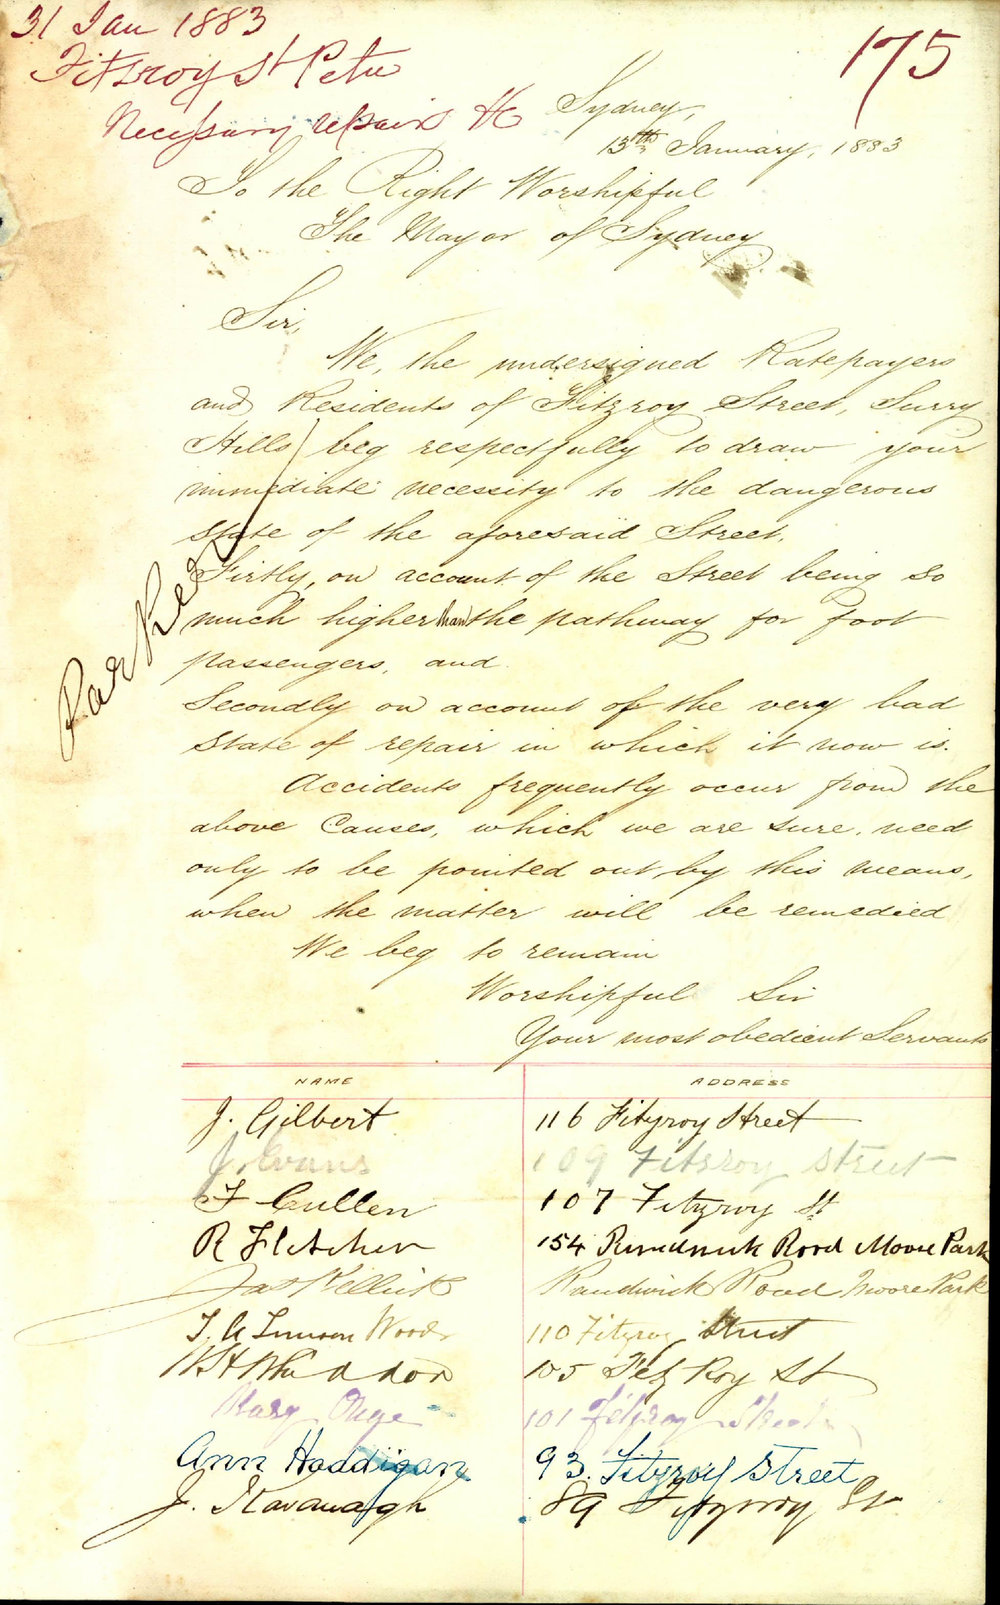 31 Jan 1883
175
Fitzroy St Petn
Necessary repairs &c
Sydney,
13th January, 1883
To the Right Worshipful
The Mayor of Sydney
Sir,
We, the undersigned Ratepayers
and Residents of Fitzroy Street, Surry
Hills) beg respectfully to draw your
immediate necessity to the dangerous
state of the aforesaid Street.
Firtly, on account of the Street being so
much higher than the pathway for foot
passengers, and
Secondly on account of the very bad
state of repair in which it now is.
Accidents frequently occur from the
above Causes, which we are sure, need
only to be pointed out, by this means,
when the matter will be remedied
We beg to remain
Worshipful Sir
Your most obedient Servants
NAME ADDRESS
J. Gilbert 116 Fitzroy Street
J. Evans 109 Fitzroy Street
F Cullen 107 Fitzroy St
R Fletcher 154 Randwick Road Moore Park
Jas Kellick Randwick Road Moore Park
Woods 110 Fitzroy Street
105 Fitz Roy St
Mary 101 Fitzroy Street
Ann Haddigan 93. Fitzroy Street
J. Kavanagh 89 Fitzroy St